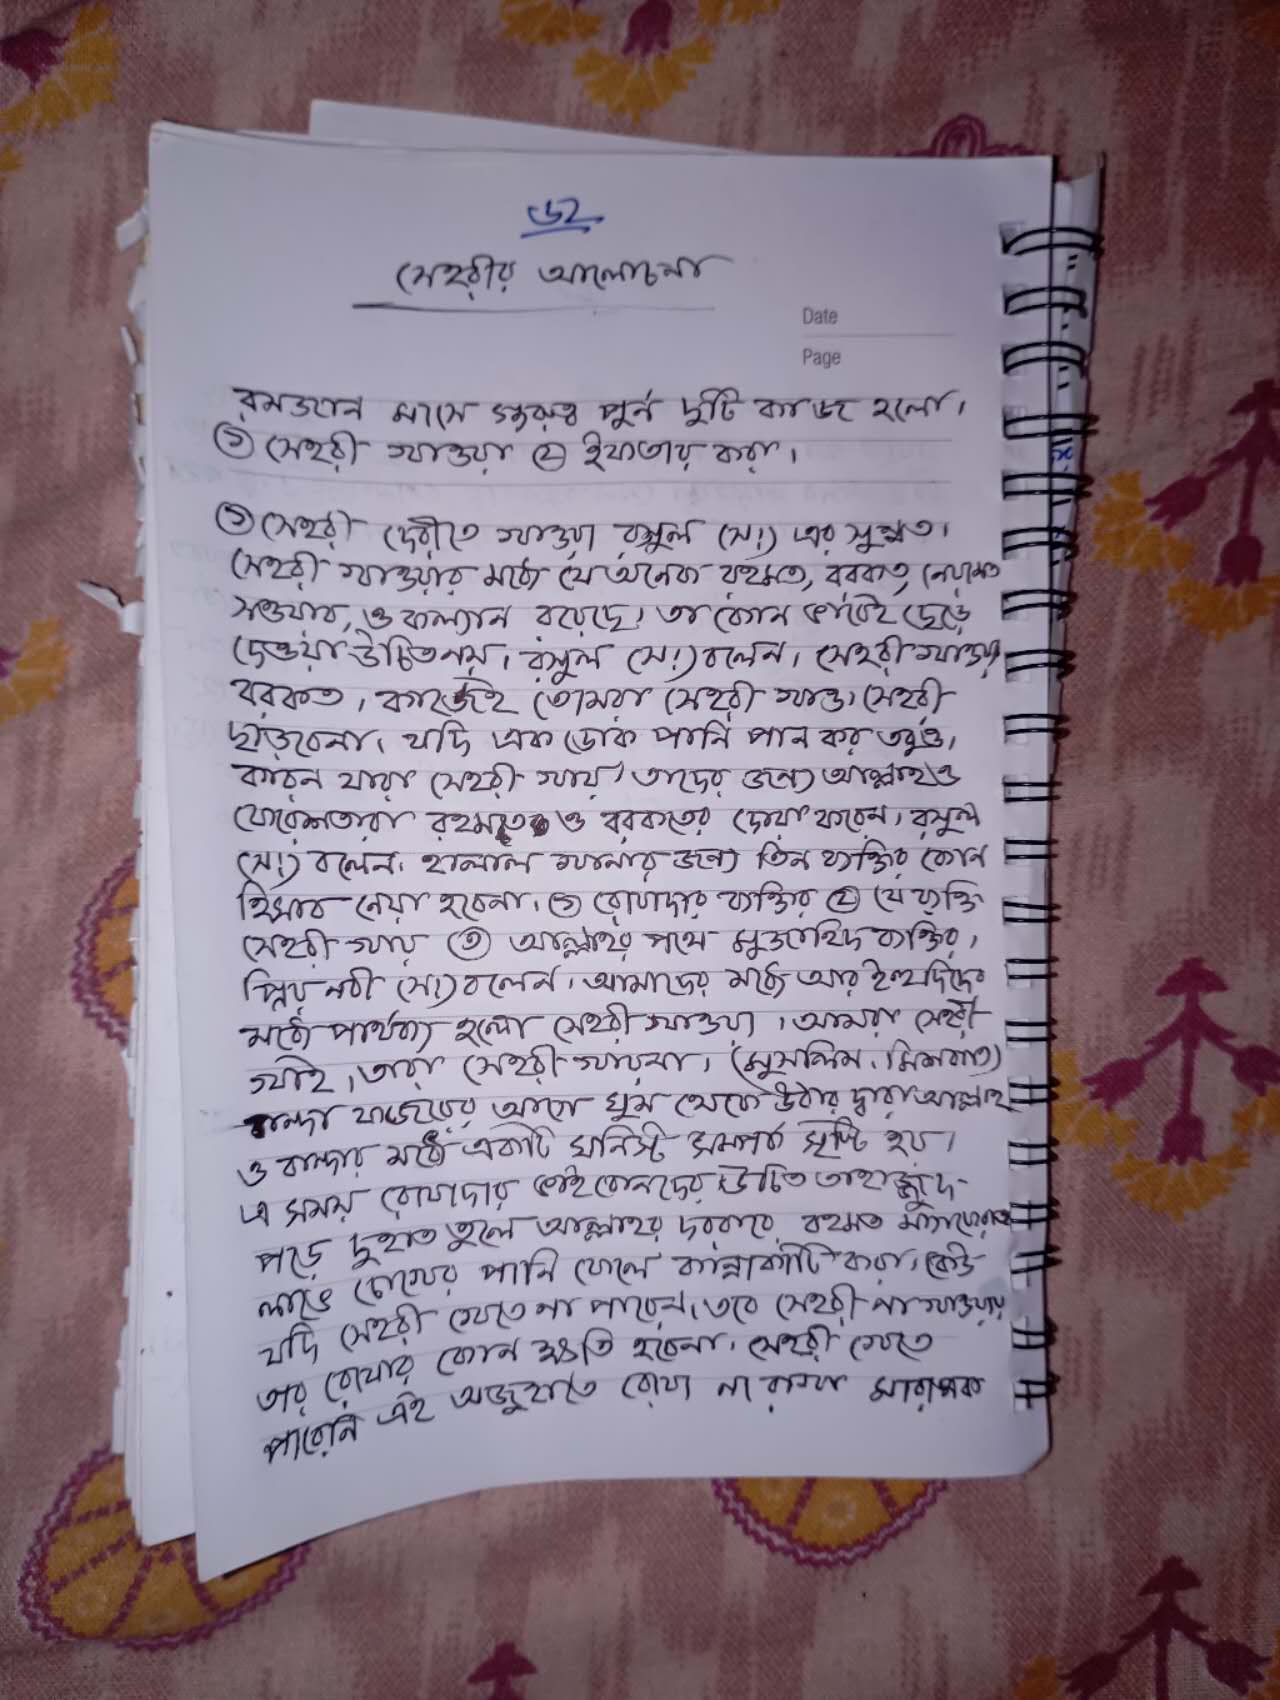 ৬২
সেহরীর আলোচনা
Date
Page
রমজান মাসে গুরুত্ব পুর্ন দুটি কাজ হলো।
① সেহরী খাওয়া ② ইফতার করা।
① সেহরী দেরীতে খাওয়া রসুল (স!) এর সুন্নত।
সেহরী খাওয়ার মধ্যে যে অনেক রহমত, বরকত, নেয়ামত
সওয়াব, ও কল্যান রয়েছে। তা কোন ভাবেই ছেড়ে
দেওয়া উচিত নয়। রসুল (স!) বলেন। সেহরী খাওয়া
বরকত। কাজেই তোমরা সেহরী খাও। সেহরী
ছাড়বেনা। যদি এক ঢোক পানি পান কর তবুও।
কারন যারা সেহরী খায়। তাদের জন্যে আল্লাহও
ফেরেশতারা রহমতের ও বরকতের দোয়া করেন। রসুল
(স!) বলেন। হালাল খানার জন্যে তিন ব্যক্তির কোন
হিসাব নেয়া হবেনা। ① রোযাদার ব্যক্তির ② যে ব্যক্তি
সেহরী খায় ③ আল্লাহর পথে মুজাহিদ ব্যক্তির।
প্রিয় নবী (স!) বলেন। আমাদের মধ্যে আর ইহুদিদের
মধ্যে পার্থক্য হলো সেহরী খাওয়া। আমরা সেহরী
খাই। তারা সেহরী খায়না। (মুসলিম। মিশকাত)
বান্দা ফজরের আগে ঘুম থেকে উঠার দ্বারা আল্লাহ
ও বান্দার মধ্যে একটি ঘনিস্ট সমপর্ক সৃষ্টি হয়।
এ সময় রোযাদার ভাইবোনদের উচিত তাহাজ্জুদ-
পড়ে দুহাত তুলে আল্লাহর দরবারে রহমত মাগফেরাত
লাভে চোখের পানি ফেলে কান্নাকাটি করা। কেউ-
যদি সেহরী খেতে না পারেন। তবে সেহরী না খাওয়ায়
তার রোযার কোন ক্ষতি হবেনা। সেহরী খেতে
পারেনি এই অজুহাতে রোযা না রাখা মারাত্মক